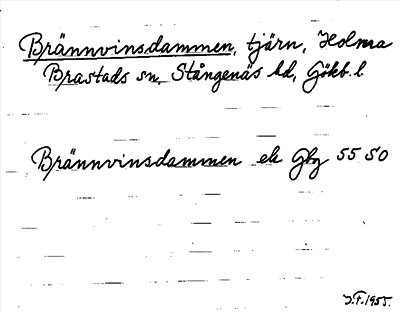 Brännvinsdammen, tjärn, Holma
Brastads sn, Stångenäs hd, Gökb. l.
Brännvinsdammen ek Gbg 55 SO
J.F. 1955.